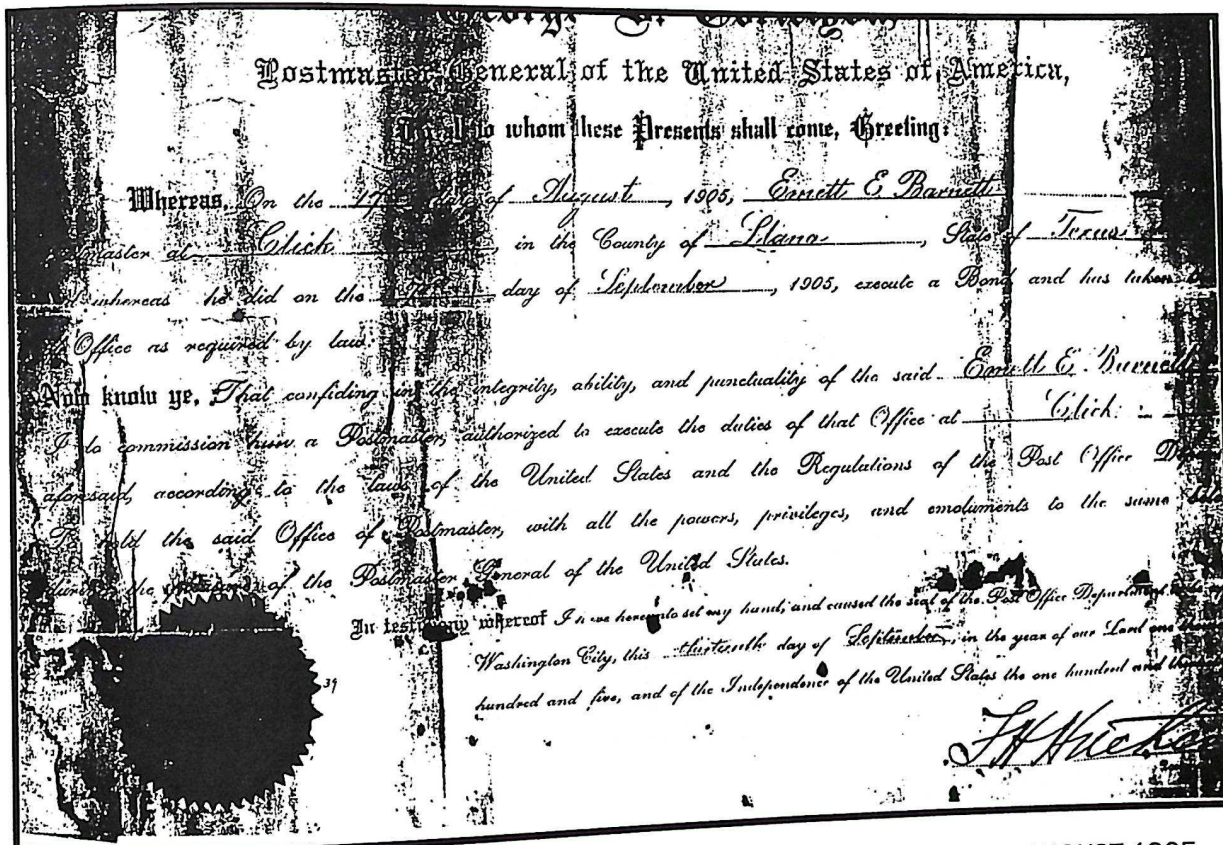 Postmaster General of the United States of America,
To all to whom these Presents shall come, Greeting:
Whereas, On the day of August, 1905, Emett E Barnett
master at Click, in the County of Llano, State of Texas
whereas he did on the day of September, 1905, execute a Bond and has taken
Office as required by law:
Now know ye, That confiding in the integrity, ability, and punctuality of the said Emett E. Barnett
I do commission him a Postmaster, authorized to execute the duties of that Office at Click
aforesaid, according to the laws of the United States and the Regulations of the Post Office
To hold the said Office of Postmaster, with all the powers, privileges, and emoluments to the same
during the of the Postmaster General of the United States.
In testimony whereof I have hereunto set my hand, and caused the seal of the Post Office Department
Washington City, this thirteenth day of September, in the year of our Lord one
hundred and five, and of the Independence of the United States the one hundred and
39